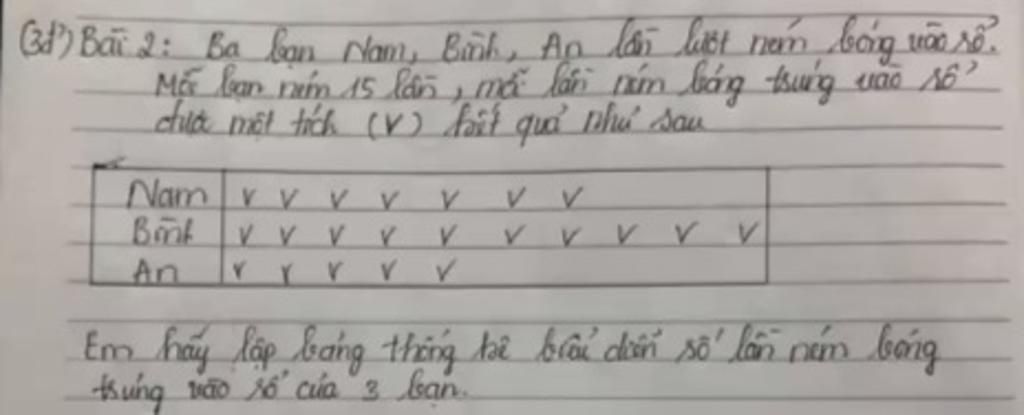 (3đ) Bài 2: Ba bạn Nam, Bình, An lần lượt ném bóng vào rổ.
Mỗi bạn ném 15 lần, mỗi lần ném bóng trúng vào rổ
được một tích (V) kết quả như sau
Nam V V V V V V V
Bình V V V V V V V V V V
An V V V V V
Em hãy lập bảng thống kê biểu diễn số lần ném bóng
trúng vào rổ của 3 bạn.